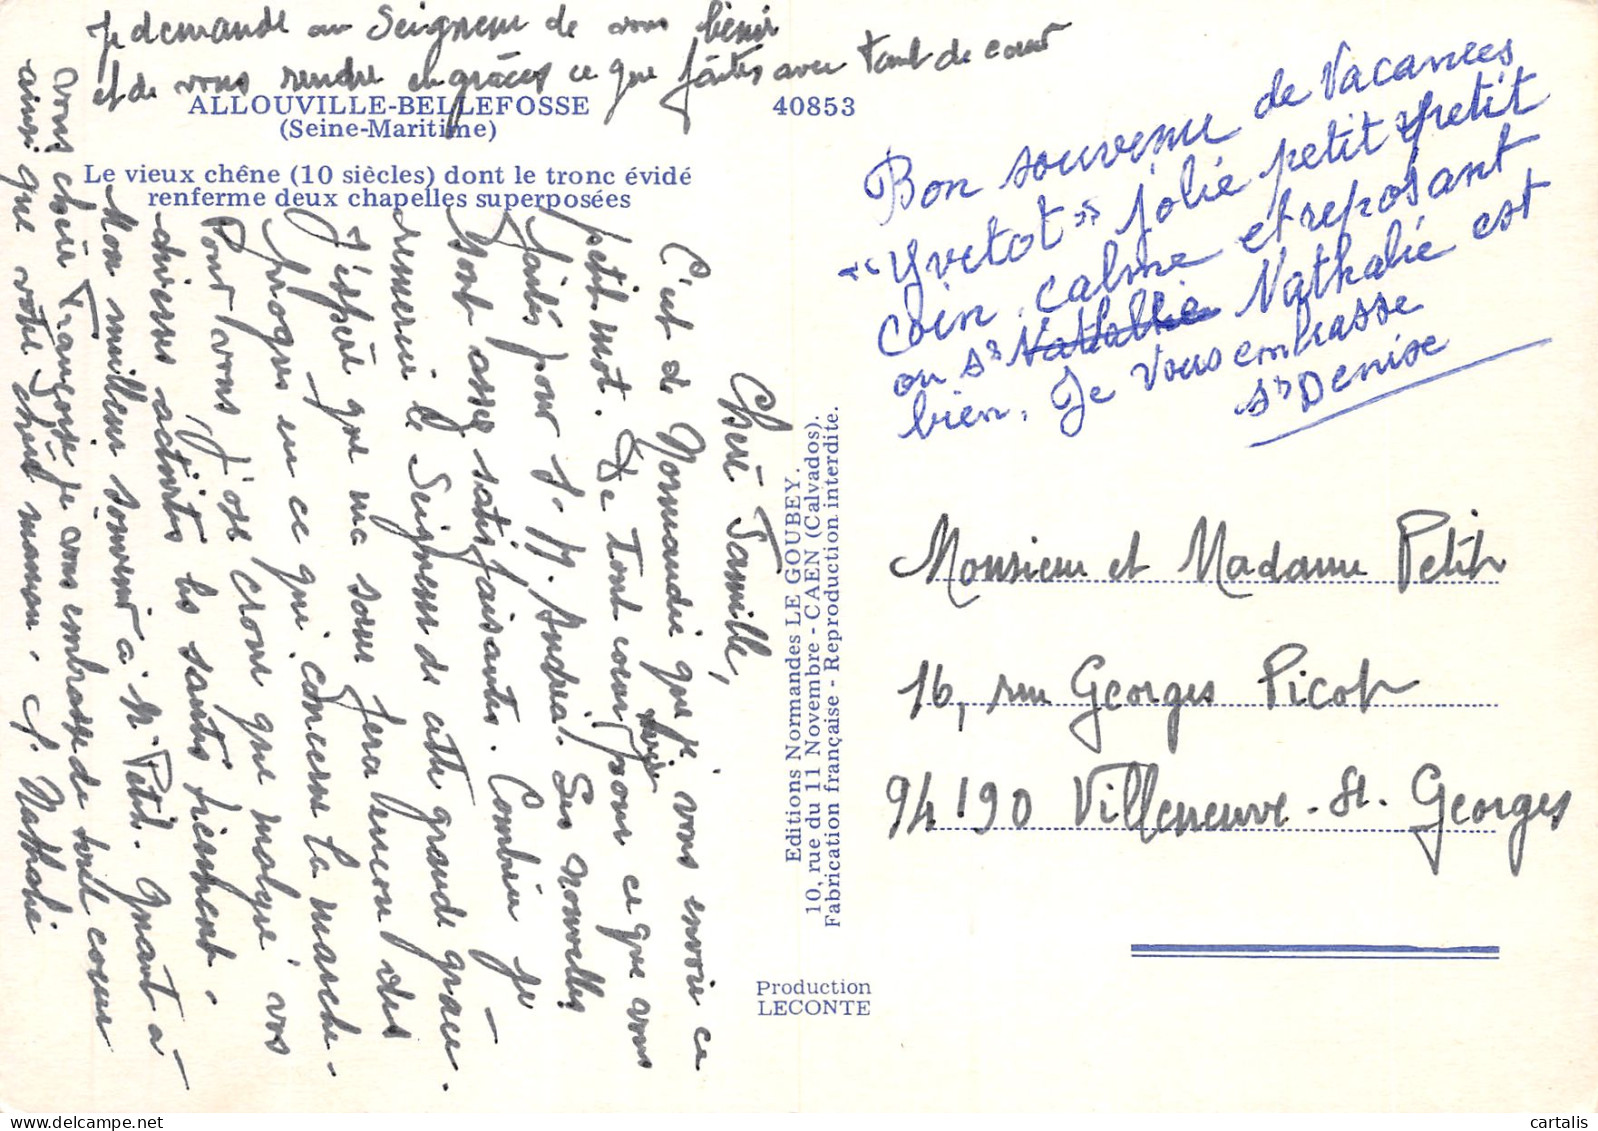 Je demande au Seigneur de vous bénir
et de vous rendre en grâces ce que faites avec tant de cœur
ALLOUVILLE-BELLEFOSSE
(Seine-Maritime)
40853
Le vieux chêne (10 siècles) dont le tronc évidé
renferme deux chapelles superposées
Chère Famille,
C'est de Normandie que je vous envoie ce
petit mot. De tout cœur pour ce que vous
faites pour S. M. Andréa. Ses nouvelles
sont assez satisfaisantes. Combien je
remercie le Seigneur de cette grande grâce.
J'espère que ma sœur fera encore des
progrès en ce qui concerne la marche.
Pour vous j'ose croire que malgré vos
diverses activités les santés tiennent.
Mon meilleur souvenir à M. Petit. Quant à
vous chère Françoise je vous embrasse de tout cœur
ainsi que votre chère maman. S. Nathalie
Editions Normandes LE GOUBEY.
10, rue du 11 Novembre - CAEN (Calvados).
Fabrication française - Reproduction interdite.
Production
LECONTE
Bon souvenir de Vacances
"Yvetot" jolie petit petit
coin calme et reposant
ou Sr Nathalie Nathalie est
bien. Je vous embrasse
Sr Denise
Monsieur et Madame Petit
16, rue Georges Picot
94190 Villeneuve-St. Georges
cartalis.com